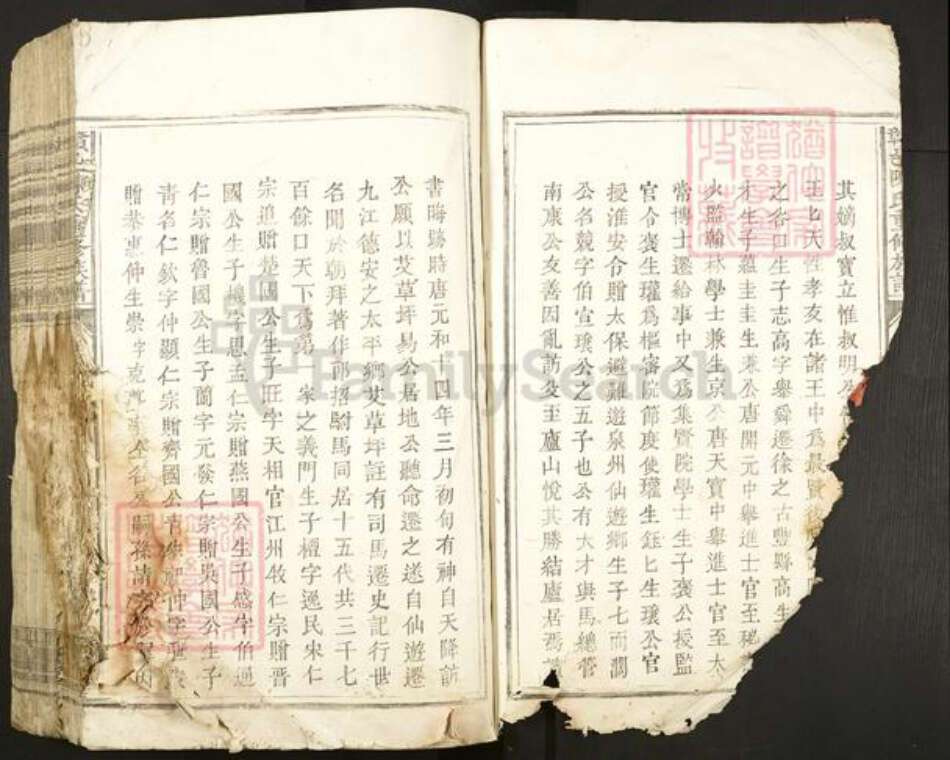 其嫡叔寶立惟叔明
王匕大性孝友在諸王中爲最賢後
之名口生子志高字舉舜遷徐之古豐縣高生
生子蘊圭圭生兼公唐開元中舉進士官至秘
火監翰林學士兼生京公唐天寶中舉進士官至大
常博士遷給事中又爲集賢院學士生子褒公授監
官令褒生瓘爲樞審院節度使瓘生鈺匕生瓌公官
授淮安令贈太保避難遊泉州仙遊鄉生子七而潤
公名競字伯宣瓌公之五子也公有大才與馬總菅
南康公友善因亂訪及至廬山悅其勝結廬居焉
書晦跡時唐元和十四年三月初旬有神自天降訪
公願以艾草坪易公居地公聽命遷之遂自仙遊遷
九江德安之太平鄉艾草坪註有司馬遷史記行世
名聞於朝拜著作郎招駙馬同居十五代共三千七
百餘口天下爲第一家之義門生子檀字遜民宋仁
宗追贈楚國公生子旺字天相官江州牧仁宗贈晉
國公生子機字思孟仁宗贈燕國公生子感字伯通
仁宗贈魯國公生子蘭字元發仁宗贈吳國公生子
青名仁欽字仲顯仁宗贈齊國公青生 仲字
贈恭惠仲生崇字克
FamilySearch